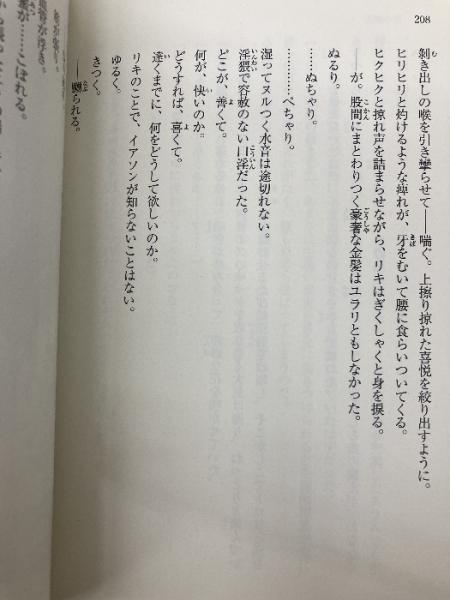 208
剝き出しの喉を引き攣らせて――喘ぐ。上擦り掠れた喜悦を絞り出すように。
ヒリヒリと灼けるような痺れが、牙をむいて腰に食らいついてくる。
ヒクヒクと掠れ声を詰まらせながら、リキはぎくしゃくと身を捩る。
――が。股間にまとわりつく豪奢な金髪はユラリともしなかった。
ぬるり。
……ぬちゃり。
…………ぺちゃり。
湿ってヌルつく水音は途切れない。
淫猥で容赦のない口淫だった。
どこが、善くて。
何が、快いのか。
どうすれば、喜くて。
逐くまでに、何をどうして欲しいのか。
リキのことで、イアソンが知らないことはない。
ゆるく。
きつく。
――嬲られる。
……こぼれる。